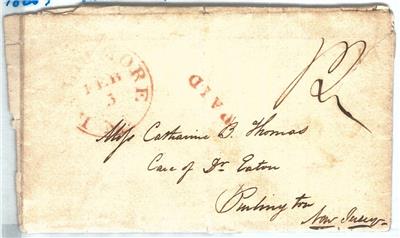 MORE
FEB
3
PAID
12
Miss Catharine B. Thomas
Care of Dr Eaton
Burlington
New Jersey